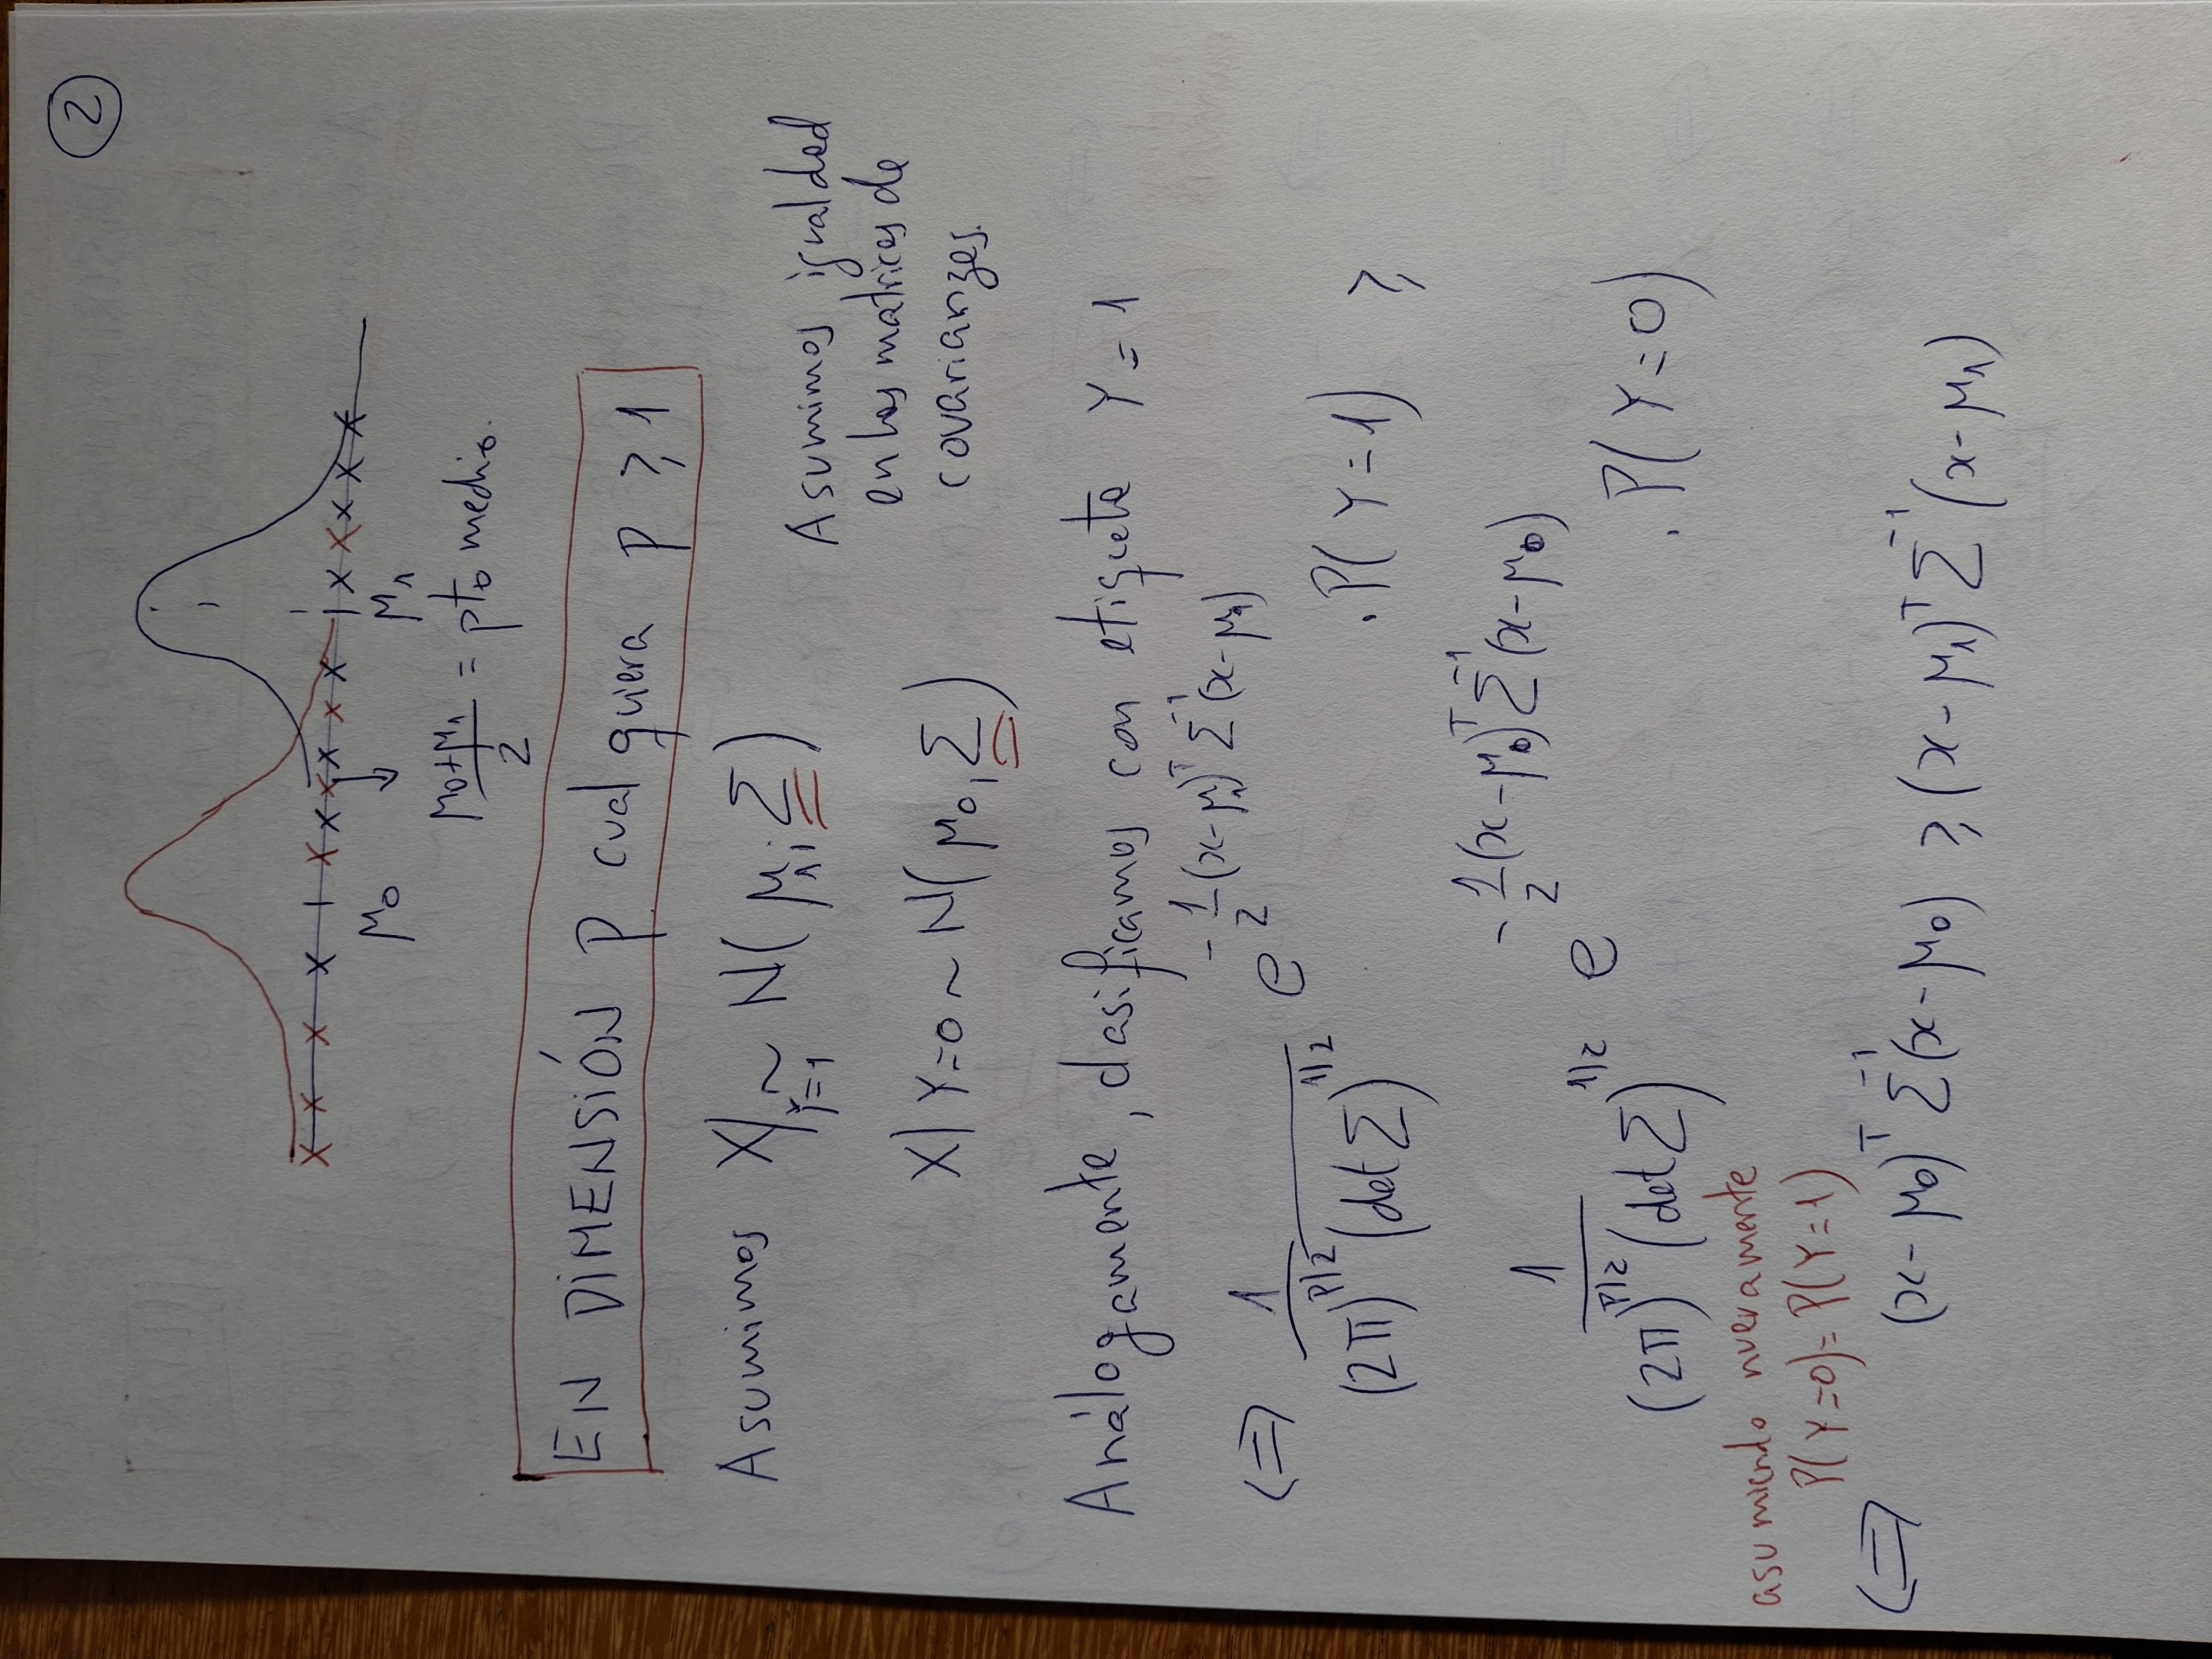 2
μ₀ μ₁
(μ₀+μ₁)/2 = pto medio.
EN DIMENSIÓN p cualquiera p ≥ 1
Asumimos X|Y=1 ~ N(μ₁; Σ)
Asumimos igualdad
en las matrices de
covarianzas.
X|Y=0 ~ N(μ₀, Σ)
Análogamente, clasificamos con etiqueta Y = 1
⇔ 1/((2π)^(p/2) (det Σ)^(1/2)) e^(-1/2 (x-μ₁)^T Σ^(-1) (x-μ₁)) . P(Y=1) ≥
1/((2π)^(p/2) (det Σ)^(1/2)) e^(-1/2 (x-μ₀)^T Σ^(-1) (x-μ₀)) . P(Y=0)
asumiendo nuevamente
P(Y=0) = P(Y=1)
⇔ (x-μ₀)^T Σ^(-1) (x-μ₀) ≥ (x-μ₁)^T Σ^(-1) (x-μ₁)